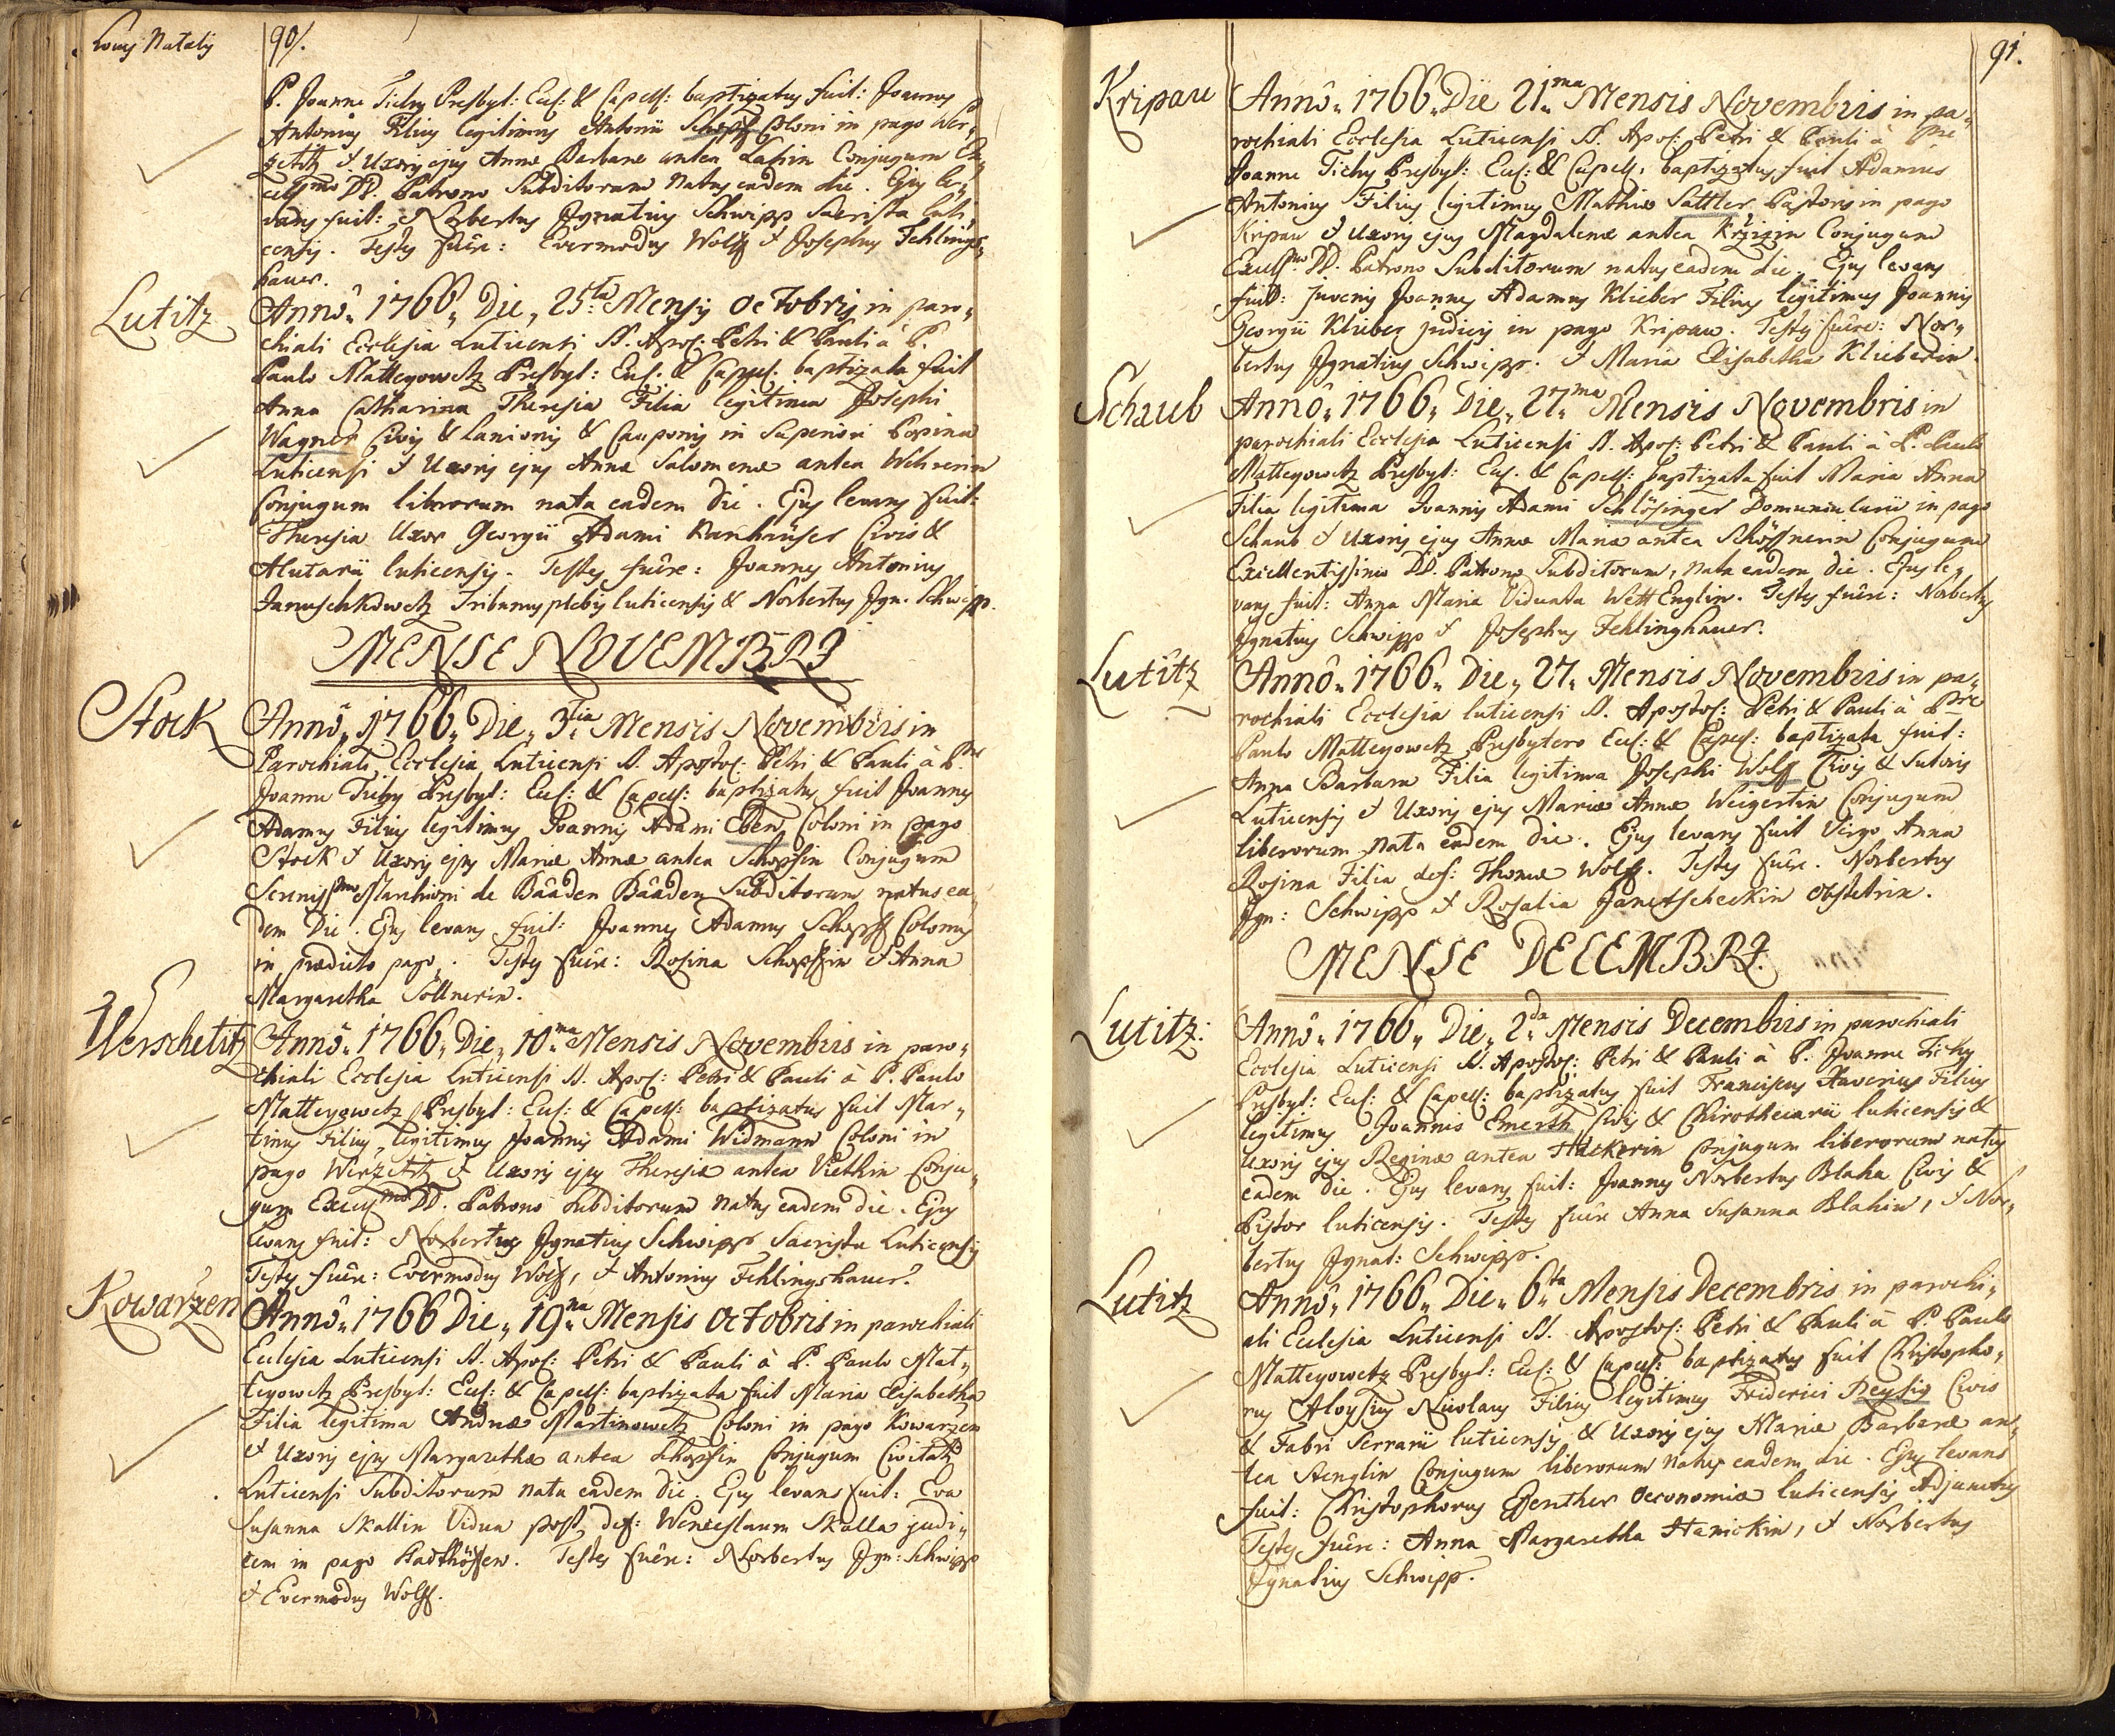 Locus Natalis
90.
P. Joanne Tichy Presbyt: Eccl: & Capell: baptizatus fuit: Joannes
Antonius Filius legitimus Antonii Schopf Coloni in pago Wer„
zetitz & Uxoris ejus Annæ Barbaræ antea Conjugum Ex„
cell^mo DD. Patrono Subditorum natus eadem die. Ejus le„
vans fuit: Norbertus Ignatius Schwipp Sacrista luti„
censis. Testes fuêre: Evermodus Wolff & Josephus Fehlings„
hauer.
Lutitz
Annô„ 1766„ Die„ 25^ta Mensis Octobris in paro„
chiali Ecclesia Luticensi SS. Apos: Petri & Pauli à P.
Paulo Matteyowetz Presbyt: Eccl: & Capell: baptizata fuit
Anna Catharina Theresia Filia legitima Josephi
Wagner Civis & Lanionis & Cauponis in Superiori Popina
Luticensi & Uxoris ejus Annæ Salomenæ antea Wehrerin
Conjugum liberorum nata eadem die. Ejus levans fuit:
Theresia Uxor Georgii Adami Kanhäuser Civis &
Alutarii luticensis. Testes fuêre: Joannes Antonius
Januschkowetz Tribunus plebis luticensis & Norbertus Ign. Schwipp.
MENSE NOVEMBRI
Stock
Annô„ 1766„ Die„ 3^tia Mensis Novembris in
Parochiali Ecclesia Luticensi SS. Apostol: Petri & Pauli à P^re
Joanne Tichy Presbyt: Eccl: & Capell: baptizatus fuit Joannes
Adamus Filius legitimus Joannis Adami Eben Coloni in pago
Stock & Uxoris ejus Mariæ Annæ antea Schopfin Conjugum
Sereniss^mo Marchioni de Bâaden Bâaden Subditorum natus ea„
dem Die. Ejus levans fuit: Joannes Adamus Schopff Colonus
in prædicto pago. Testes fuêre: Rosina Schopfin & Anna
Margaretha Söllnerin.
Werschetitz
Annô„ 1766„ Die„ 10^ma Mensis Novembris in paro„
chiali Ecclesia luticensi SS. Apos: Petri & Pauli à P. Paulo
Matteyowetz Presbyt: Eccl: & Capell: baptizatus fuit Mar„
tinus Filius legitimus Joannis Adami Widmann Coloni in
pago Werzetitz & Uxoris ejus Theresiæ antea Viethin Conju„
gum Excell^mo DD. Patrono Subditorum natus eadem die. Ejus
levans fuit: Norbertus Ignatius Schwipp Sacrista Luticensis
Testes fuêre: Evermodus Wolf, & Antonius Fehlingshauer.
Kowaržen
Annô„ 1766 Die„ 19^na Mensis Octobris in parochiali
Ecclesia Luticensi SS. Apos: Petri & Pauli à P. Paulo Mat„
teyowetz Presbyt: Eccl: & Capell: baptizata fuit Maria Elisabetha
Filia legitima Andreæ Martinowetz Coloni in pago Kowaržen
& Uxoris ejus Margarethæ antea Schopfin Conjugum Civitati
Luticensi Subditorum nata eadem die. Ejus levans fuit: Eva
Susanna Skallin Vidua post def: Wenceslaum Skalla judi„
cem in pago. Testes fuêre: Norbertus Ign: Schwipp
& Evermodus Wolff.
91.
Kripau
Annô„ 1766„ Die 21^ma Mensis Novembris in pa„
rochiali Ecclesia Luticensi SS. Apos: Petri & Pauli à P^re
Joanne Tichy Presbyt: Eccl: & Capell: baptizatus fuit Adamus
Antonius Filius legitimus Mathiæ Sattler Pastoris in pago
Kripau & Uxoris ejus Magdalenæ antea Conjugum
Excell^mo DD. Patrono Subditorum natus eadem die. Ejus levans
fuit: juvenis Joannes Adamus Klieber Filius legitimus Joannis
Georgii Klieber judicis in pago Kripau. Testes fuêre: Nor„
bertus Ignatius Schwipp. & Maria Elisabetha Klieberin.
Schaub
Annô„ 1766„ Die„ 27^ma Mensis Novembris in
parochiali Ecclesia Luticensi SS. Apos: Petri & Pauli à P. Paulo
Matteyowetz Presbyt: Eccl: & Capell: baptizata fuit Maria Anna
Filia legitima Joannis Adami Schlösinger Domuncularii in pago
Schaub & Uxoris ejus Annæ Mariæ antea Schössnerin Conjugum
Excellentissimo DD. Patrono Subditorum, nata eadem die. Ejus le„
vans fuit: Anna Maria Viduata WettEnglin. Testes fuêre: Norbertus
Ignatius Schwipp & Josephus Fehlinghauer.
Lutitz
Annô„ 1766„ Die„ 27„ Mensis Novembris in pa„
rochiali Ecclesia luticensi SS. Apostol: Petri & Pauli à P^re
Paulo Matteyowetz Presbytero Eccl: & Capell: baptizata fuit:
Anna Barbara Filia legitima Josephi Wolff Civis & Sutoris
Luticensis & Uxoris ejus Mariæ Annæ Weigertin Conjugum
liberorum nata eadem die. Ejus levans fuit Virgo Anna
Rosina Filia def: Thomæ Wolff. Testes fuêre. Norbertus
Ign: Schwipp & Rosalia Janetscheckin obstetrix.
MENSE DECEMBRI.
Lutitz:
Annô„ 1766„ Die„ 2^da Mensis Decembris in parochiali
Ecclesia Luticensi SS. Apostol: Petri & Pauli à P. Joanne Tichy
Presbyt: Eccl: & Capell: baptizatus fuit Franciscus Xaverius Filius
legitimus Joannis Emerth Civis & Chirothecarii luticensis &
Uxoris ejus Reginæ antea Häckerin Conjugum liberorum natus
eadem die. Ejus levans fuit: Joannes Norbertus Blaha Civis &
Pistor luticensis. Testes fuêre Anna Susanna Blahin, & Nor„
bertus Ignat: Schwipp.
Lutitz
Annô„ 1766„ Die„ 6^ta Mensis Decembris in parochi„
ali Ecclesia Luticensi SS. Apostol: Petri & Pauli à P. Paulo
Matteyowetz Presbyt: Eccl: & Capell: baptizatus fuit Christopho„
rus Aloysius Nicolaus Filius legitimus Friderici Reysig Civis
& Fabri Serrarii luticensis & Uxoris ejus Mariæ Barbaræ an„
tea Stenglin Conjugum liberorum natus eadem die. Ejus levans
fuit: Christophorus Genther Oeconomiæ luticensis Adjunctus
Testes fuêre: Anna Margaretha Hanickin, & Norbertus
Ignatius Schwipp.